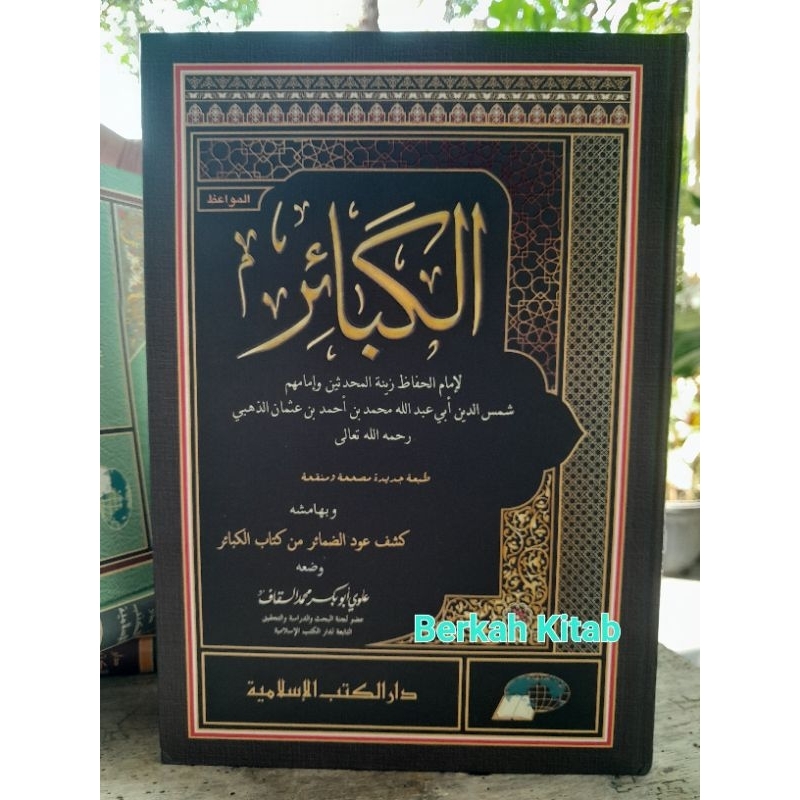 المواعظ
الكبائر
لإمام الحفاظ زينة المحدثين وإمامهم
شمس الدين أبي عبد الله محمد بن أحمد بن عثمان الذهبي
رحمه الله تعالى
طبعة جديدة مصححة ومنقحة
وبهامشه
كشف عود الضمائر من كتاب الكبائر
وضعه
علوي أبو بكر محمد السقاف
عضو لجنة البحث والدراسة والتحقيق
التابعة لدار الكتب الإسلامية
Berkah Kitab
دار الكتب الإسلامية